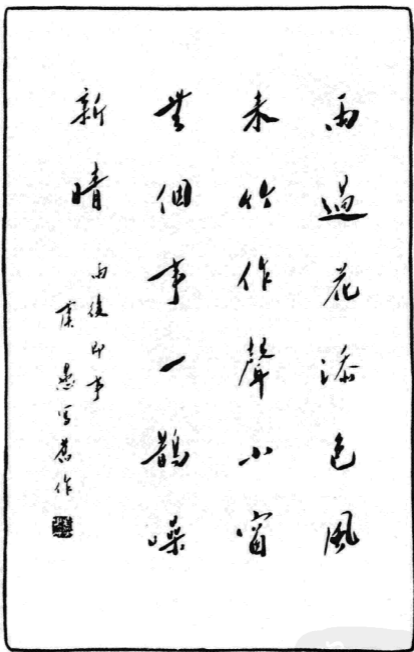 雨過花添色風
来竹作聲小窗
無個事一鵲噪
新晴
雨後即事
虞愚写舊作